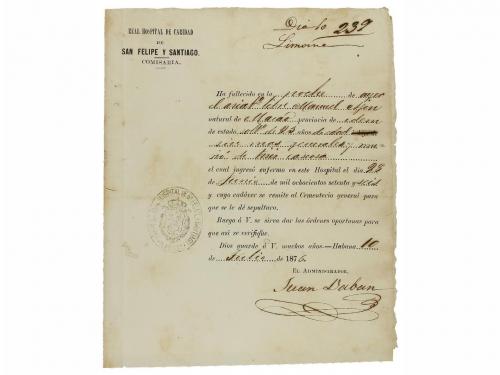 REAL HOSPITAL DE CARIDAD
DE
SAN FELIPE Y SANTIAGO.
COMISARÍA.
Dia 10 239
Ha fallecido en la noche de ayer
el asiatº libre Manuel
natural de Macao provincia de idem
de estado soltº de 23 años de edad
señas generales y
de
el cual ingresó enfermo en este Hospital el dia 28
de Junio de mil ochocientos setenta y seis
y cuyo cadáver se remite al Cementerio general para
que se le dé sepultura.
Ruego á V. se sirva dar las órdenes oportunas para
que así se verifique.
Dios guarde á V. muchos años—Habana 10
de Julio de 1876
EL ADMINISTRADOR,
Juan Daban